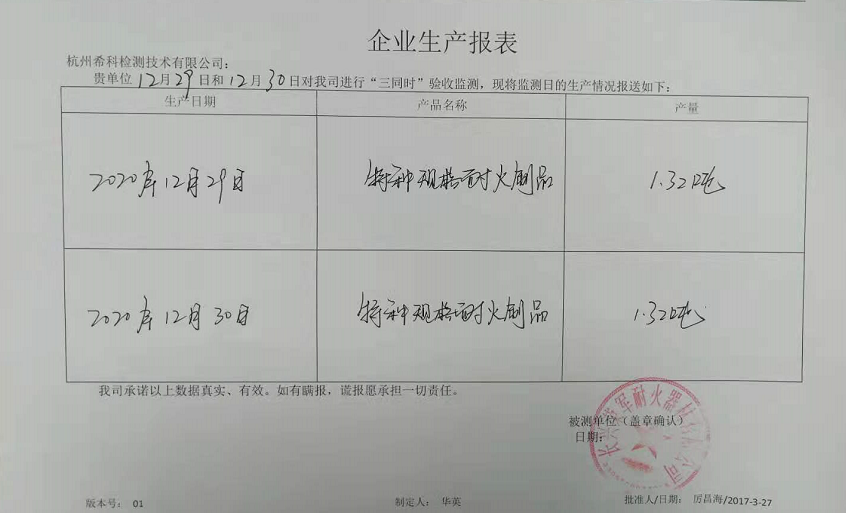 企业生产报表
杭州希科检测技术有限公司：
贵单位12月29日和12月30日对我司进行“三同时”验收监测，现将监测日的生产情况报送如下：
生产日期 产品名称 产量
2020年12月29日 特种规格耐火制品 1.32吨
2020年12月30日 特种规格耐火制品 1.32吨
我司承诺以上数据真实、有效。如有瞒报，谎报愿承担一切责任。
被测单位（盖章确认）
日期：
长兴 军耐火器材有限公司
版本号： 01 制定人： 华英 批准人/日期： 厉昌海/2017-3-27